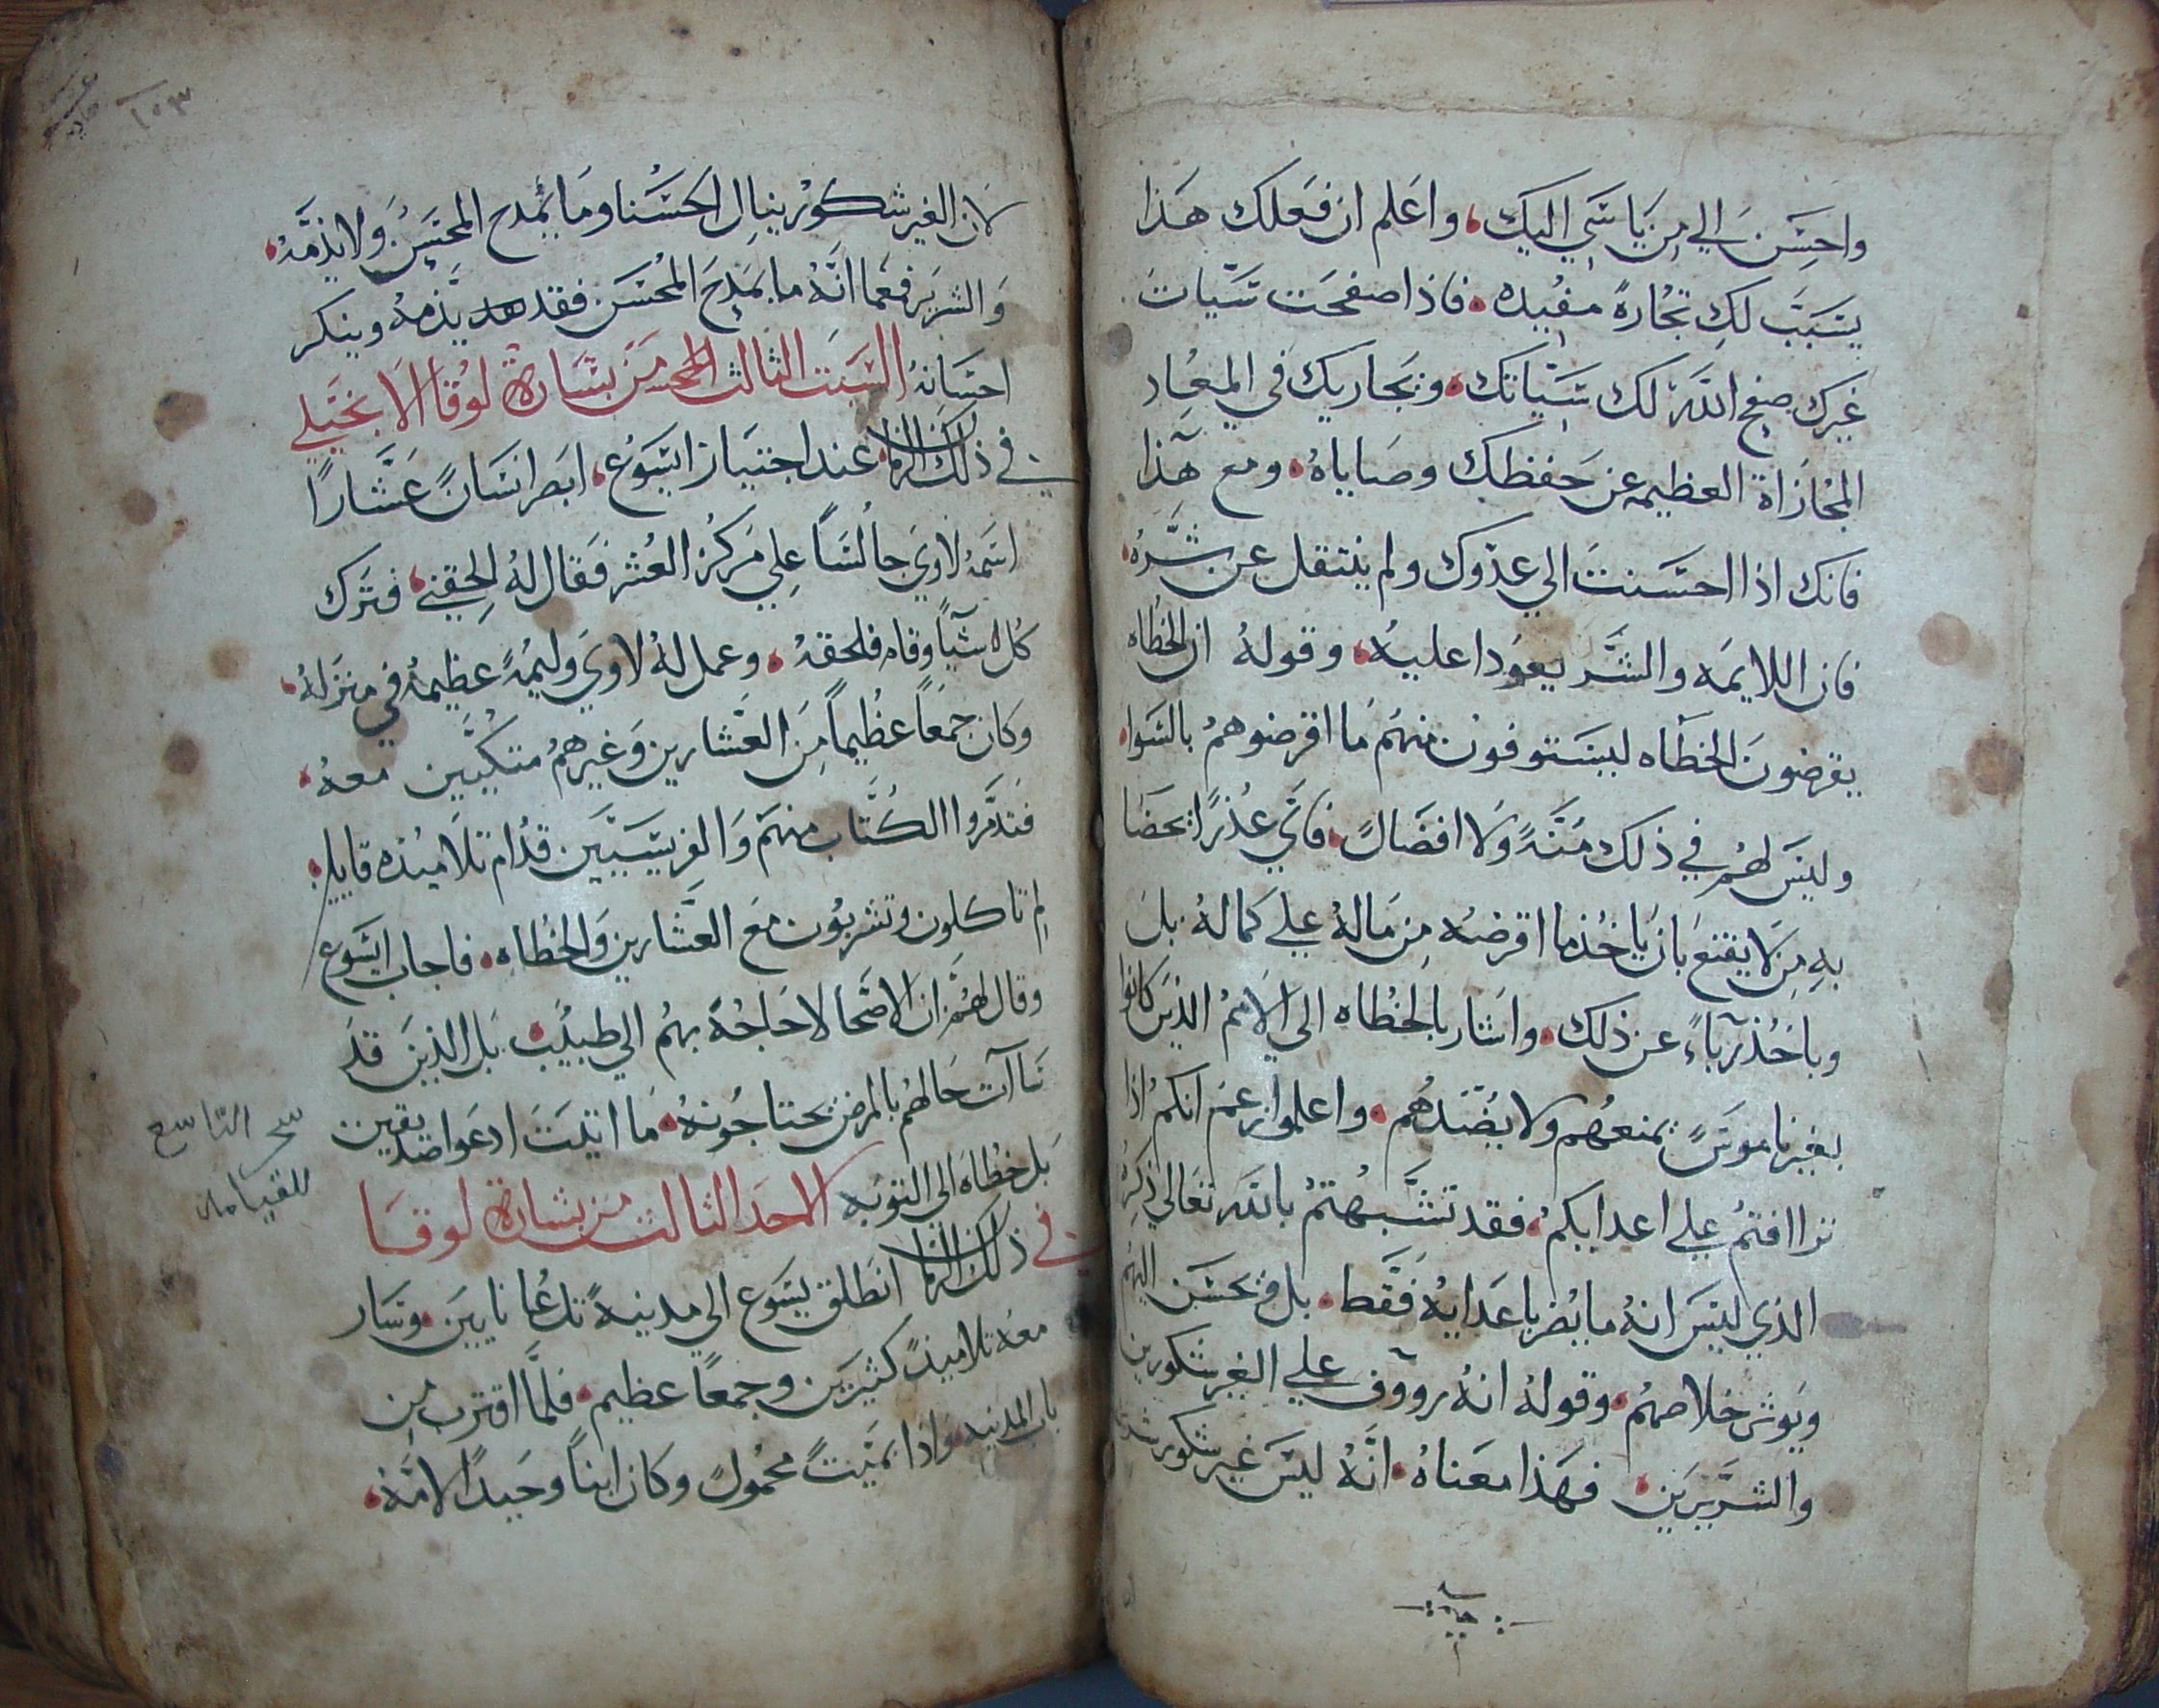 واحسن الي من ياسي اليك، واعلم ان فعلك هذا
يسبب لك تجارة مفيده. فاذا صفحت سيات
غيرك صفح الله لك سياتك. ويجاريك في الميعاد
المجازاة العظيمه عن حفظك وصاياه. ومع هذا
فانك اذا احسنت الي عدوك ولم ينتقل عن شره
فان اللايمه والشر يعودا عليه، وقوله ان الخطاه
يقرضون الخطاه ليستوفون منهم ما اقرضوهم بالسوا
وليس لهم في ذلك منة ولا افضال. فاي عذرا يحضا
به من لا يقنع بان ياخذ ما اقرضه من ماله علي كماله بل
وياخذ رباء عن ذلك. واشار بالخطاه الي الامم الذين كانوا
بغير ناموس يمنعهم ولا يصدهم. واعلموا انكم اذا
تراافتم علي اعدايكم. فقد تشبهتم بالله تعالي ذكره
الذي ليس انه ما يضر باعدايه فقط. بل ويحسن اليهم
ويوثر خلاصهم. وقوله انه رووف علي الغير شكورين
والشريرين. فهذا معناه. انه ليس غير شكور
لان الغير شكور ينال الحسنا وما يمدح المحسن ولا يذمه.
والشرير فعما انه ما يمدح المحسن فقد يذمه وينكر
احسانه السبت الثالث من بشارة لوقا الانجيلي
في ذلك الزمان عند اجتياز ايسوع. ابصر انسان عشارا
اسمه لاوي جالسا علي مركز العشر فقال له الحقني، فترك
كل شيا وقام فلحقه. وعمل له لاوي وليمة عظيمة في منزله.
وكان جمعا عظيما من العشارين وغيرهم متكيين معه.
فتذمروا الكتاب منهم والفريسيين قدام تلاميذه قايلين
لم تاكلون وتشربون مع العشارين والخطاه. فاجاب ايسوع
وقال لهم ان الاصحا لا حاجة بهم الي طبيب. بل الذين قد
ساآت حالهم بالمرض يحتاجونه. ما اتيت ادعوا صديقين
بل خطاه الي التوبه الاحد الثالث من بشارة لوقا
في ذلك الزمان انطلق يسوع الي مدينة تدعا نايين. وسار
معه تلاميذ كثيرين وجمعا عظيم. فلما اقترب من
باب المدينه واذا بميت محمول وكان ابنا وحيدا لامه.
سحر التاسع
للقيامه
١٥٣